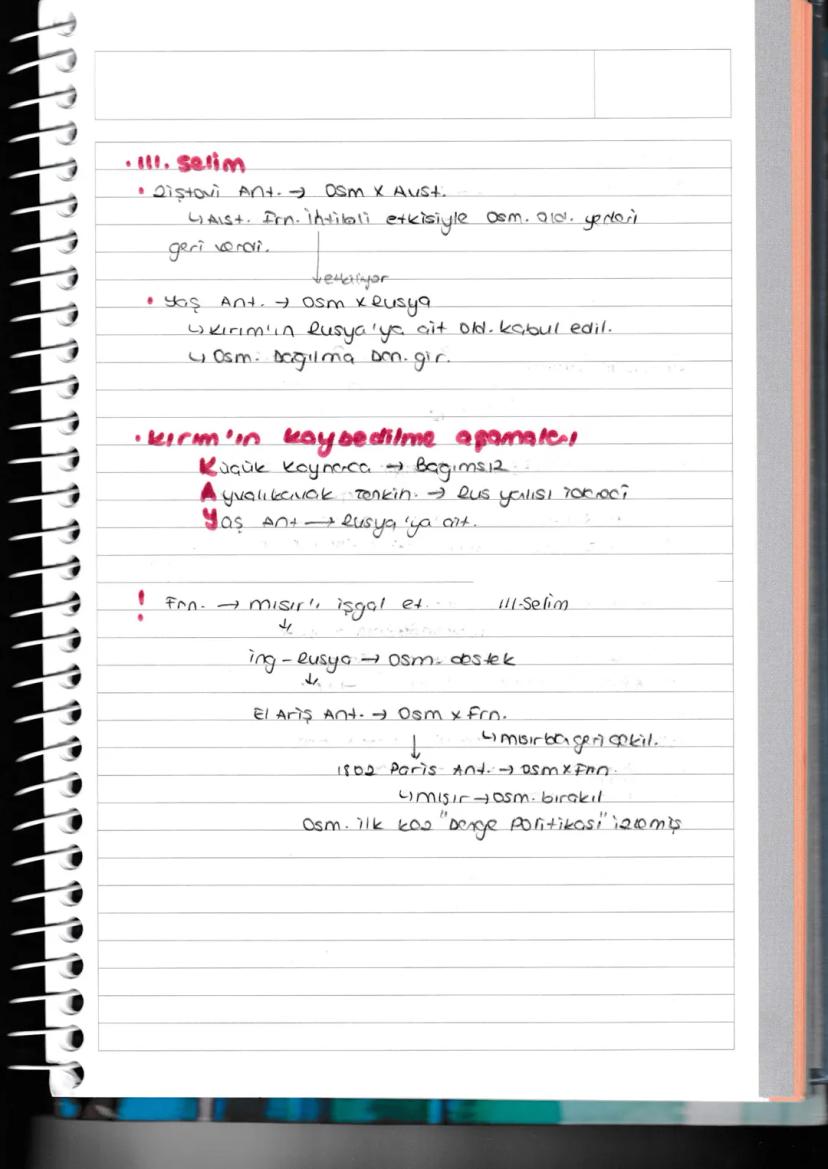 • III. Selim
• Ziştovi Ant. → Osm x Avst.
↳ Avst. Frn. İhtilali etkisiyle Osm. ald. yerleri
geri verdi.
↓ etkiliyor
• Yaş Ant. → Osm x Rusya
↳ Kırım'ın Rusya'ya ait old. kabul edil.
↳ Osm. Dağılma Dön. gir.
• Kırım'ın kaybedilme aşamaları
Küçük Kaynarca → Bağımsız
Aynalıkavak Tenkih. → Rus yanlısı
Yaş Ant → Rusya'ya ait.
! Frn. → Mısır'ı işgal et. III-Selim
↓
ing - Rusya → Osm. destek
↓
El Ariş Ant. → Osm x Frn.
↳ Mısır'dan geri çekil.
↓
1802 Paris Ant. → Osm x Frn.
↳ Mısır → Osm. bırakıl
Osm. ilk kez "Denge Politikası" izlemiş